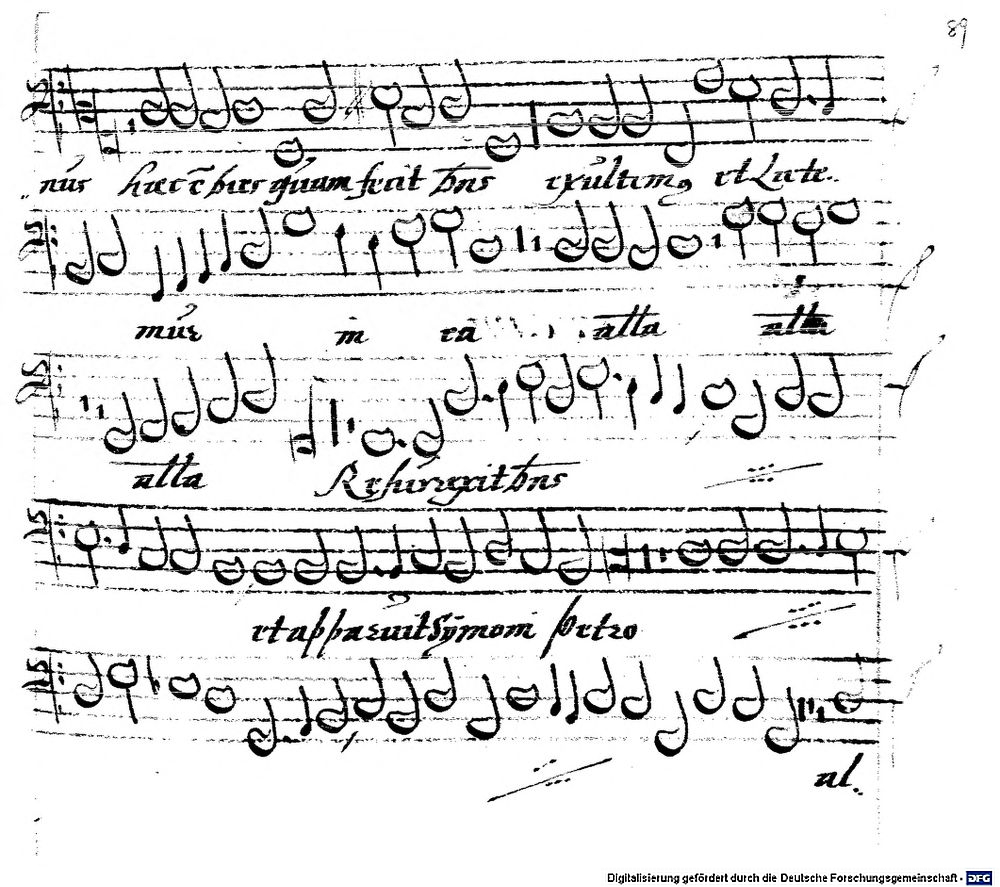 89
nus hæc ē dies quam fecit dns exultemꝯ et Læte..
mur in ea alla alla
alla Resurrexit dns
et apparuit Symoni petro
al..
Digitalisierung gefördert durch die Deutsche Forschungsgemeinschaft - DFG